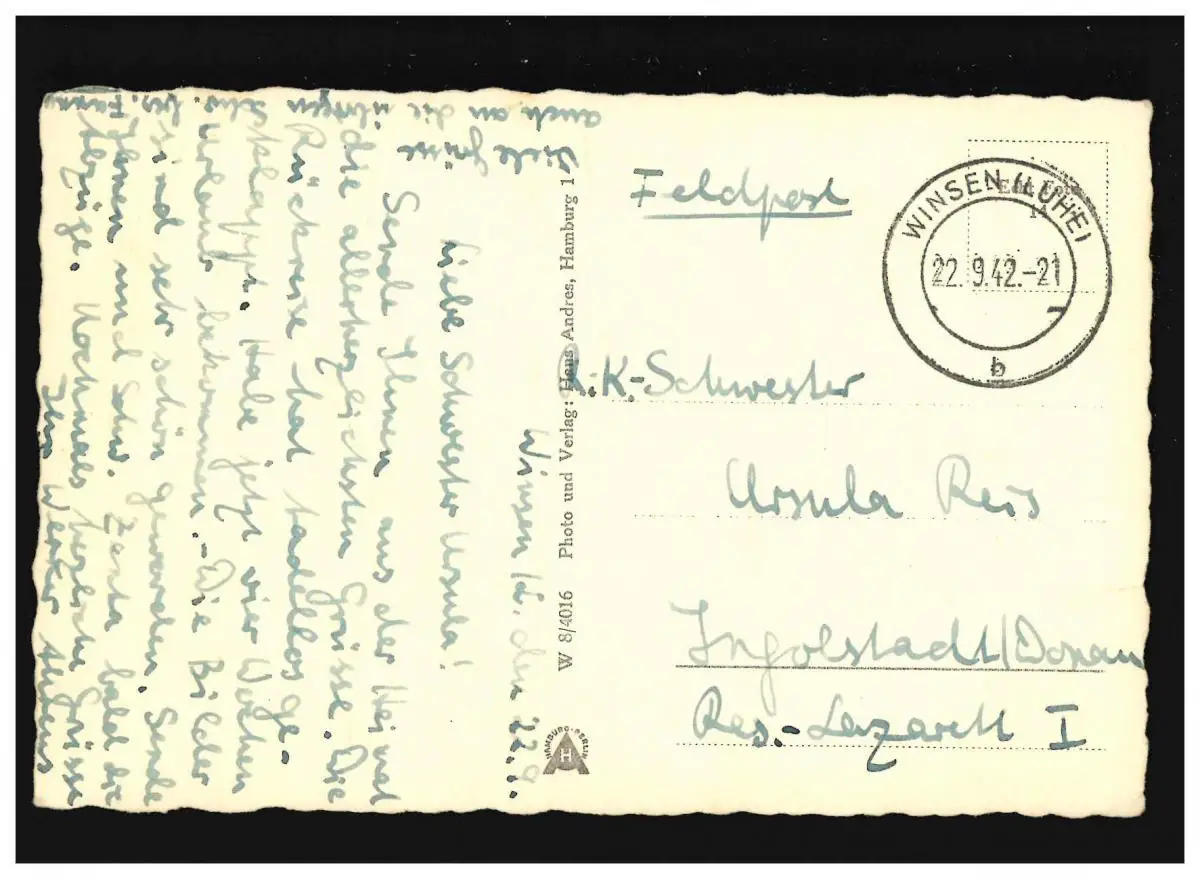 Winsen/L. den 22.9.
Liebe Schwester Ursula!
Sende Ihnen aus der Heimat
die allerherzlichsten Grüsse. Die
Rückreise hat tadellos ge-
klappt. Habe jetzt vier Wochen
Urlaub bekommen.- Die Bilder
sind sehr schön geworden. Sende
Ihnen und Schw. Zenta bald die
Abzüge. Nochmals herzliche Grüsse
Ihr Werner
Viele Grüsse
auch an die übrigen Schw.
W 8/4016 Photo und Verlag: Hans Andres, Hamburg 1
HAMBURG-BERLIN
Feldpost
Echt Foto
WINSEN (LUHE)
22.9.42.-21
b
R.K.-Schwester
Ursula Reis
Ingolstadt/Donau
Res.-Lazarett I